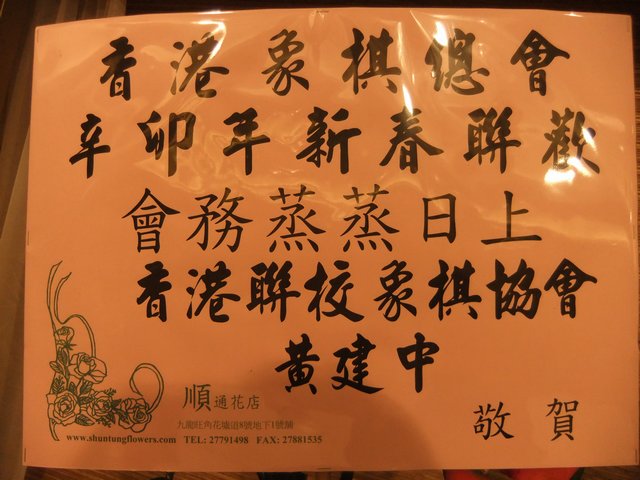 香港象棋總會
辛卯年新春聯歡
會務蒸蒸日上
香港聯校象棋協會
黃建中
敬賀
順通花店
九龍旺角花墟道8號地下1號舖
www.shuntungflowers.com TEL: 27791498 FAX: 27881535